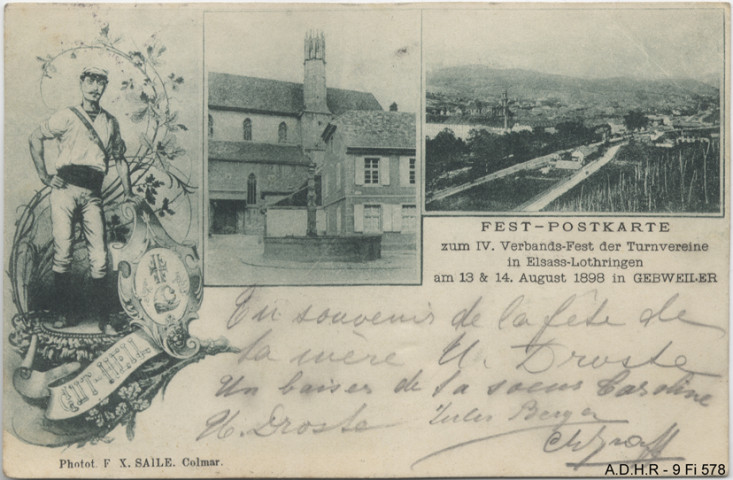 FEST-POSTKARTE
zum IV. Verbands-Fest der Turnvereine
in Elsass-Lothringen
am 13 & 14. August 1898 in GEBWEILER
GUT-HEIL
En souvenir de la fête de
ta mère M. Droste
Un baiser de ta soeur Caroline
M. Droste Jules Berger
Photot. F. X. SAILE. Colmar.
A.D.H.R - 9 Fi 578